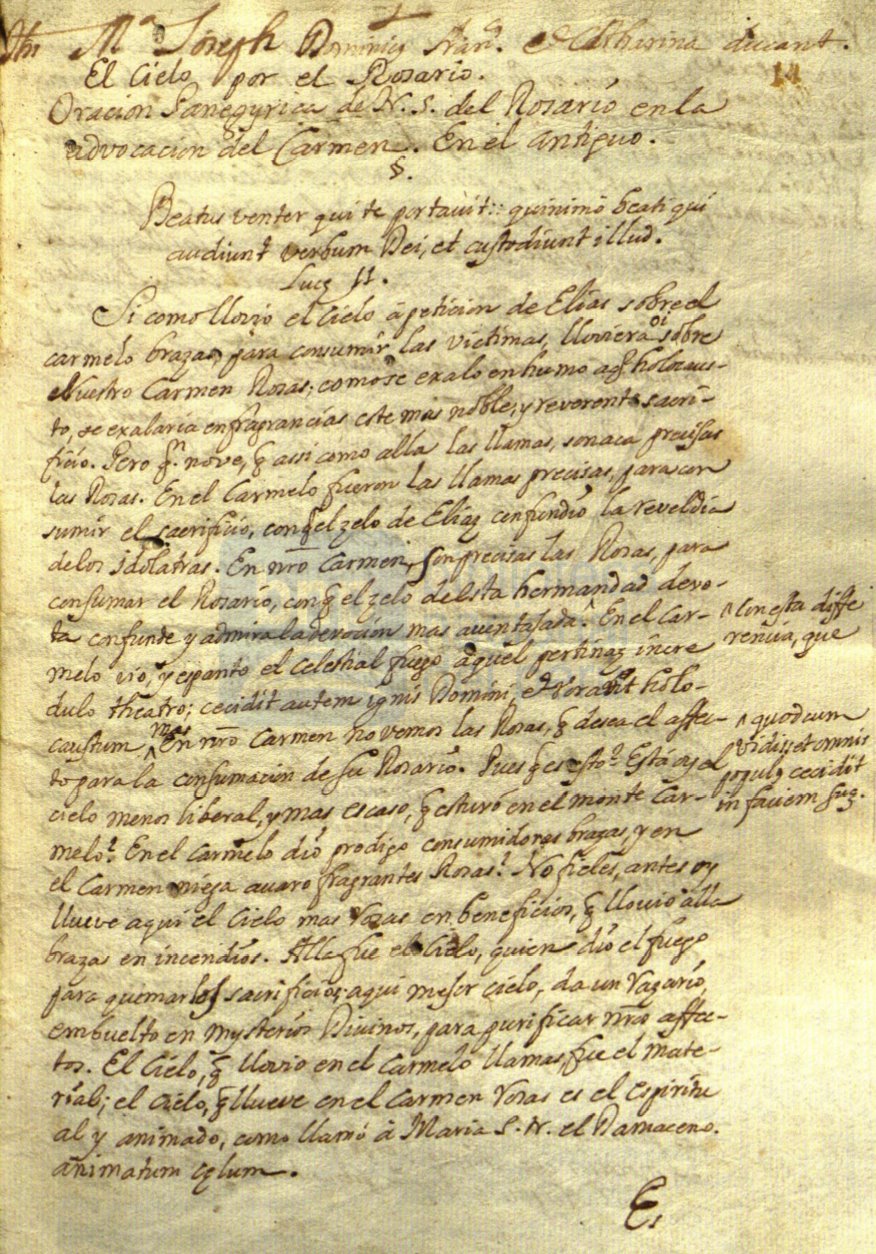 Jhs Mª Joseph Dominicus Fran. et Catharina ducant.
11
El Cielo por el Rosario.
Oracion Panegyrica de N. S. del Rosario en la
advocacion del Carmen. En el antiguo.
§.
Beatus venter qui te portavit:: quinimo beati qui
audiunt verbum Dei, et custodiunt illud.
Lucę 11.
Si como llovio el Cielo á peticion de Elias sobre el
carmelo brazas, para consumir las victimas, lloviera oi sobre
Nuestro Carmen Rosas; como se exalo en humo aql̃ holocaus-
to, se exalaria en fragrancias este mas noble, y reverente sacri-
ficio. Pero q̃ nove, q̃ assi como alla las llamas, son aca precisas
las Rosas. En el Carmelo fueron las llamas precisas, para con
sumir el sacrificio, con q̃ el zelo de Elias confundio la reveldia
de los idolatras. En nr̃o Carmen, son precisas las Rosas, para
consumar el Rosario, con q̃ el zelo de esta hermandad devo-
ta confunde y admira la devocion mas aventajada. ^ En el Car-
^ Con esta diffe
rencia, que
melo vio, y espanto el celestial fuego aquel pertinaz incre
dulo theatro; cecidit autem ignis Domini, et voravit holo-
caustum ^ mas En nr̃o Carmen no vemos las Rosas, q̃ desea el affec-
^ quod cum
vidisset omnis
populus cecidit
in faciem suą.
to para la consumacion de su Rosario. Pues q̃ es esto? Está oy el
cielo menos liberal, y mas escaso, q̃ estuvo en el monte Car-
melo? En el Carmelo dio prodigo consumidores brazas, y en
el Carmen niega avaro fragrantes Rosas? No fieles, antes oy
llueve aqui el Cielo mas Rosas en beneficios, q̃ llovio alla
brazas en incendios. Alla fue el Cielo, quien dio el fuego
para quemar los sacrificios; aqui mejor cielo, da un Rosario,
embuelto en mysterios Divinos, para purificar nr̃os affec-
tos. El Cielo, q̃ llovio en el Carmelo llamas, fue el mate-
rial; el Cielo, q̃ llueve en el Carmen Rosas es el espiritu
al y animado, como llamó á Maria S. N. el Damaceno.
animatum cęlum.
Es